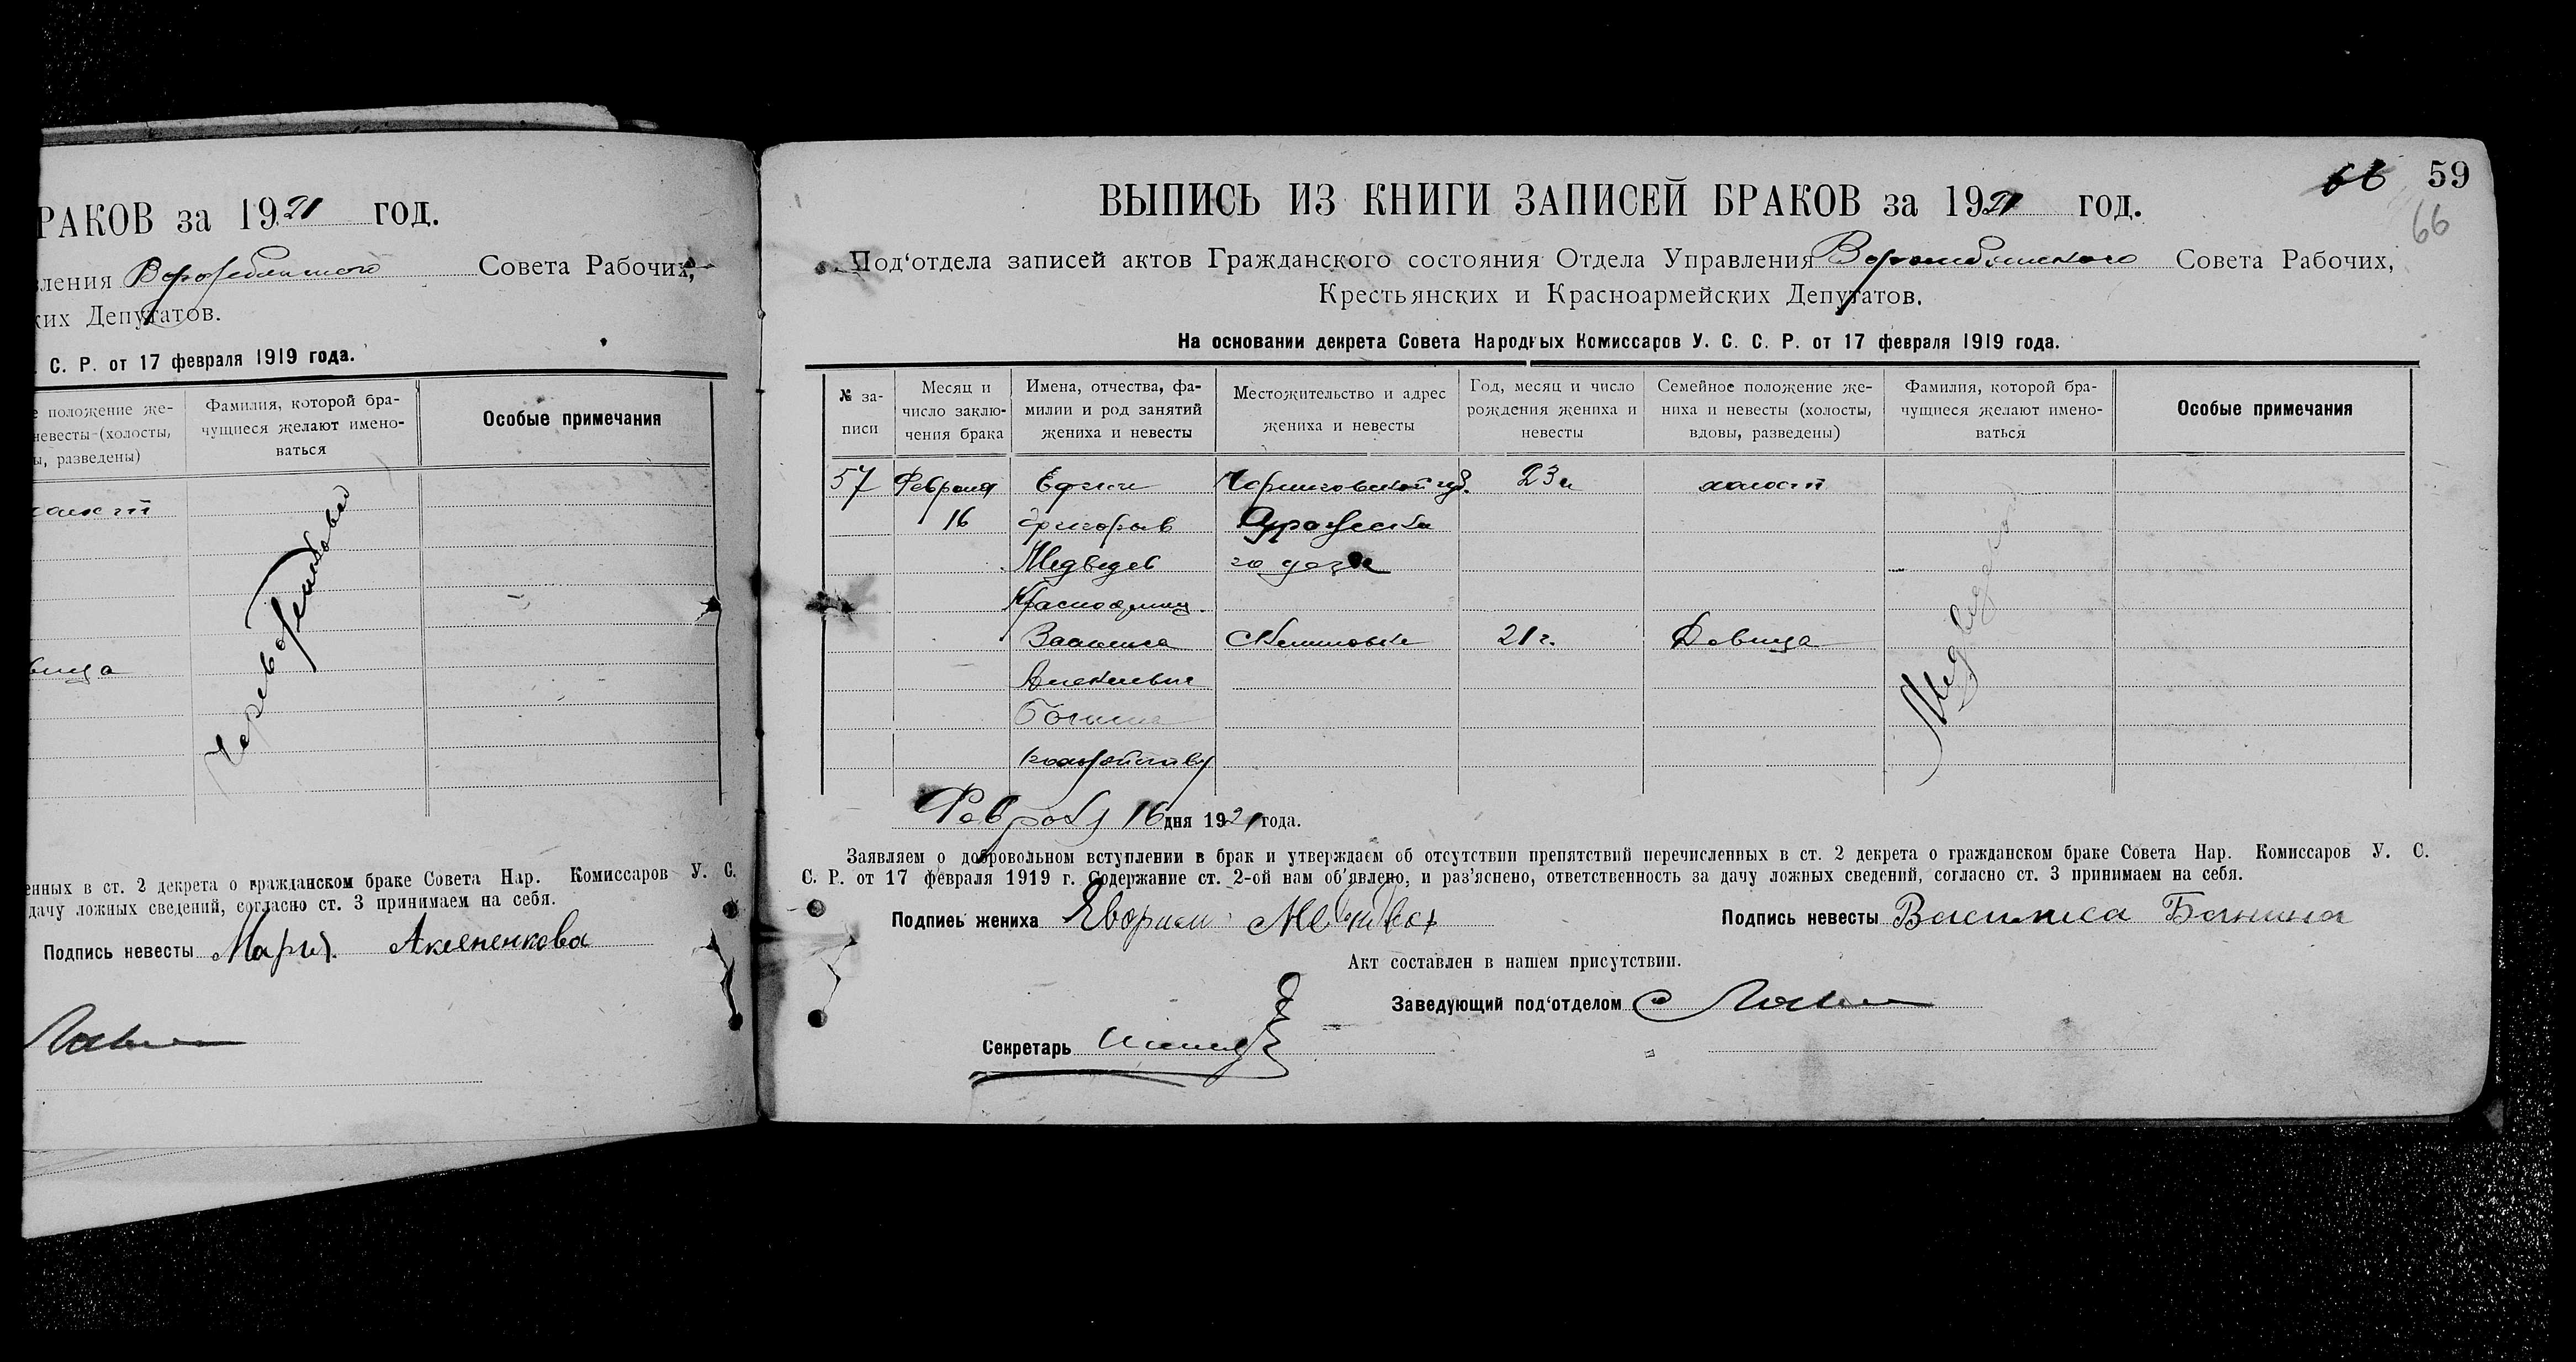 РАКОВ за 1921 год.
вления Ворожбянского Совета Рабочих,
ких Депутатов.
. С. Р. от 17 февраля 1919 года.
е положение же-
невесты (холосты,
ы, разведены)
Фамилия, которой бра-
чущиеся желают имено-
ваться
Особые примечания
вица
енных в ст. 2 декрета о гражданском браке Совета Нар. Комиссаров У. С.
дачу ложных сведений, согласно ст. 3 принимаем на себя.
Подпись невесты Мария Акименкова
59
66
66
ВЫПИСЬ ИЗ КНИГИ ЗАПИСЕЙ БРАКОВ за 1921 год.
Под‘отдела записей актов Гражданского состояния Отдела Управления Ворожбянского Совета Рабочих,
Крестьянских и Красноармейских Депутатов.
На основании декрета Совета Народных Комиссаров У. С. С. Р. от 17 февраля 1919 года.
№ за-
писи
Месяц и
число заклю-
чения брака
Имена, отчества, фа-
милии и род занятий
жениха и невесты
Местожительство и адрес
жениха и невесты
Год, месяц и число
рождения жениха и
невесты
Семейное положение же-
ниха и невесты (холосты,
вдовы, разведены)
Фамилия, которой бра-
чущиеся желают имено-
ваться
Особые примечания
57 Февраля Черниговской губ. 23 холост
16 Григорьев
Медведев го уезда
Красноармец.
Василиса 21 г. Девица
Алексеевна
Банина
Февраля 16 дня 1921 года.
Заявляем о добровольном вступлении в брак и утверждаем об отсутствии препятствий перечисленных в ст. 2 декрета о гражданском браке Совета Нар. Комиссаров У. С.
С. Р. от 17 февраля 1919 г. Содержание ст. 2-ой нам об‘явлено, и раз‘яснено, ответственность за дачу ложных сведений, согласно ст. 3 принимаем на себя.
Подпись жениха
Подпись невесты Василиса Банина
Акт составлен в нашем присутствии.
Заведующий под‘отделом
Секретарь